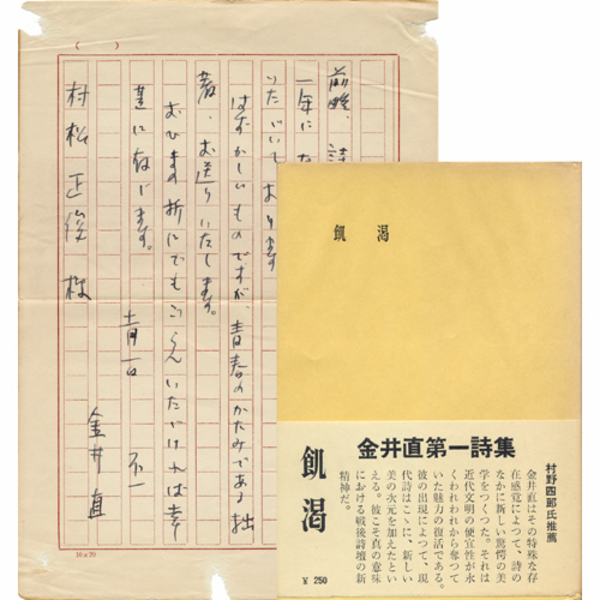 前略、詩
一年にな
いたゞいております
はずかしいものですが、青春のかたみである拙
著、お送りいたします。
おひまの折にでもごらんいたゞければ幸
甚に存じます。
不一
金井直
村松正俊様
10×20
飢渇
金井直第一詩集
村野四郎氏推薦
金井直はその特殊な存
在感覚によつて、詩の
なかに新しい驚愕の美
学をつくつた。それは
近代文明の便宜性が永
くわれわれから奪つて
いた魅力の復活である。
彼の出現によつて、現
代詩はこゝに、新しい
美の次元を加えたとい
える。彼こそ真の意味
における戦後詩壇の新
精神だ。
飢渇
¥250